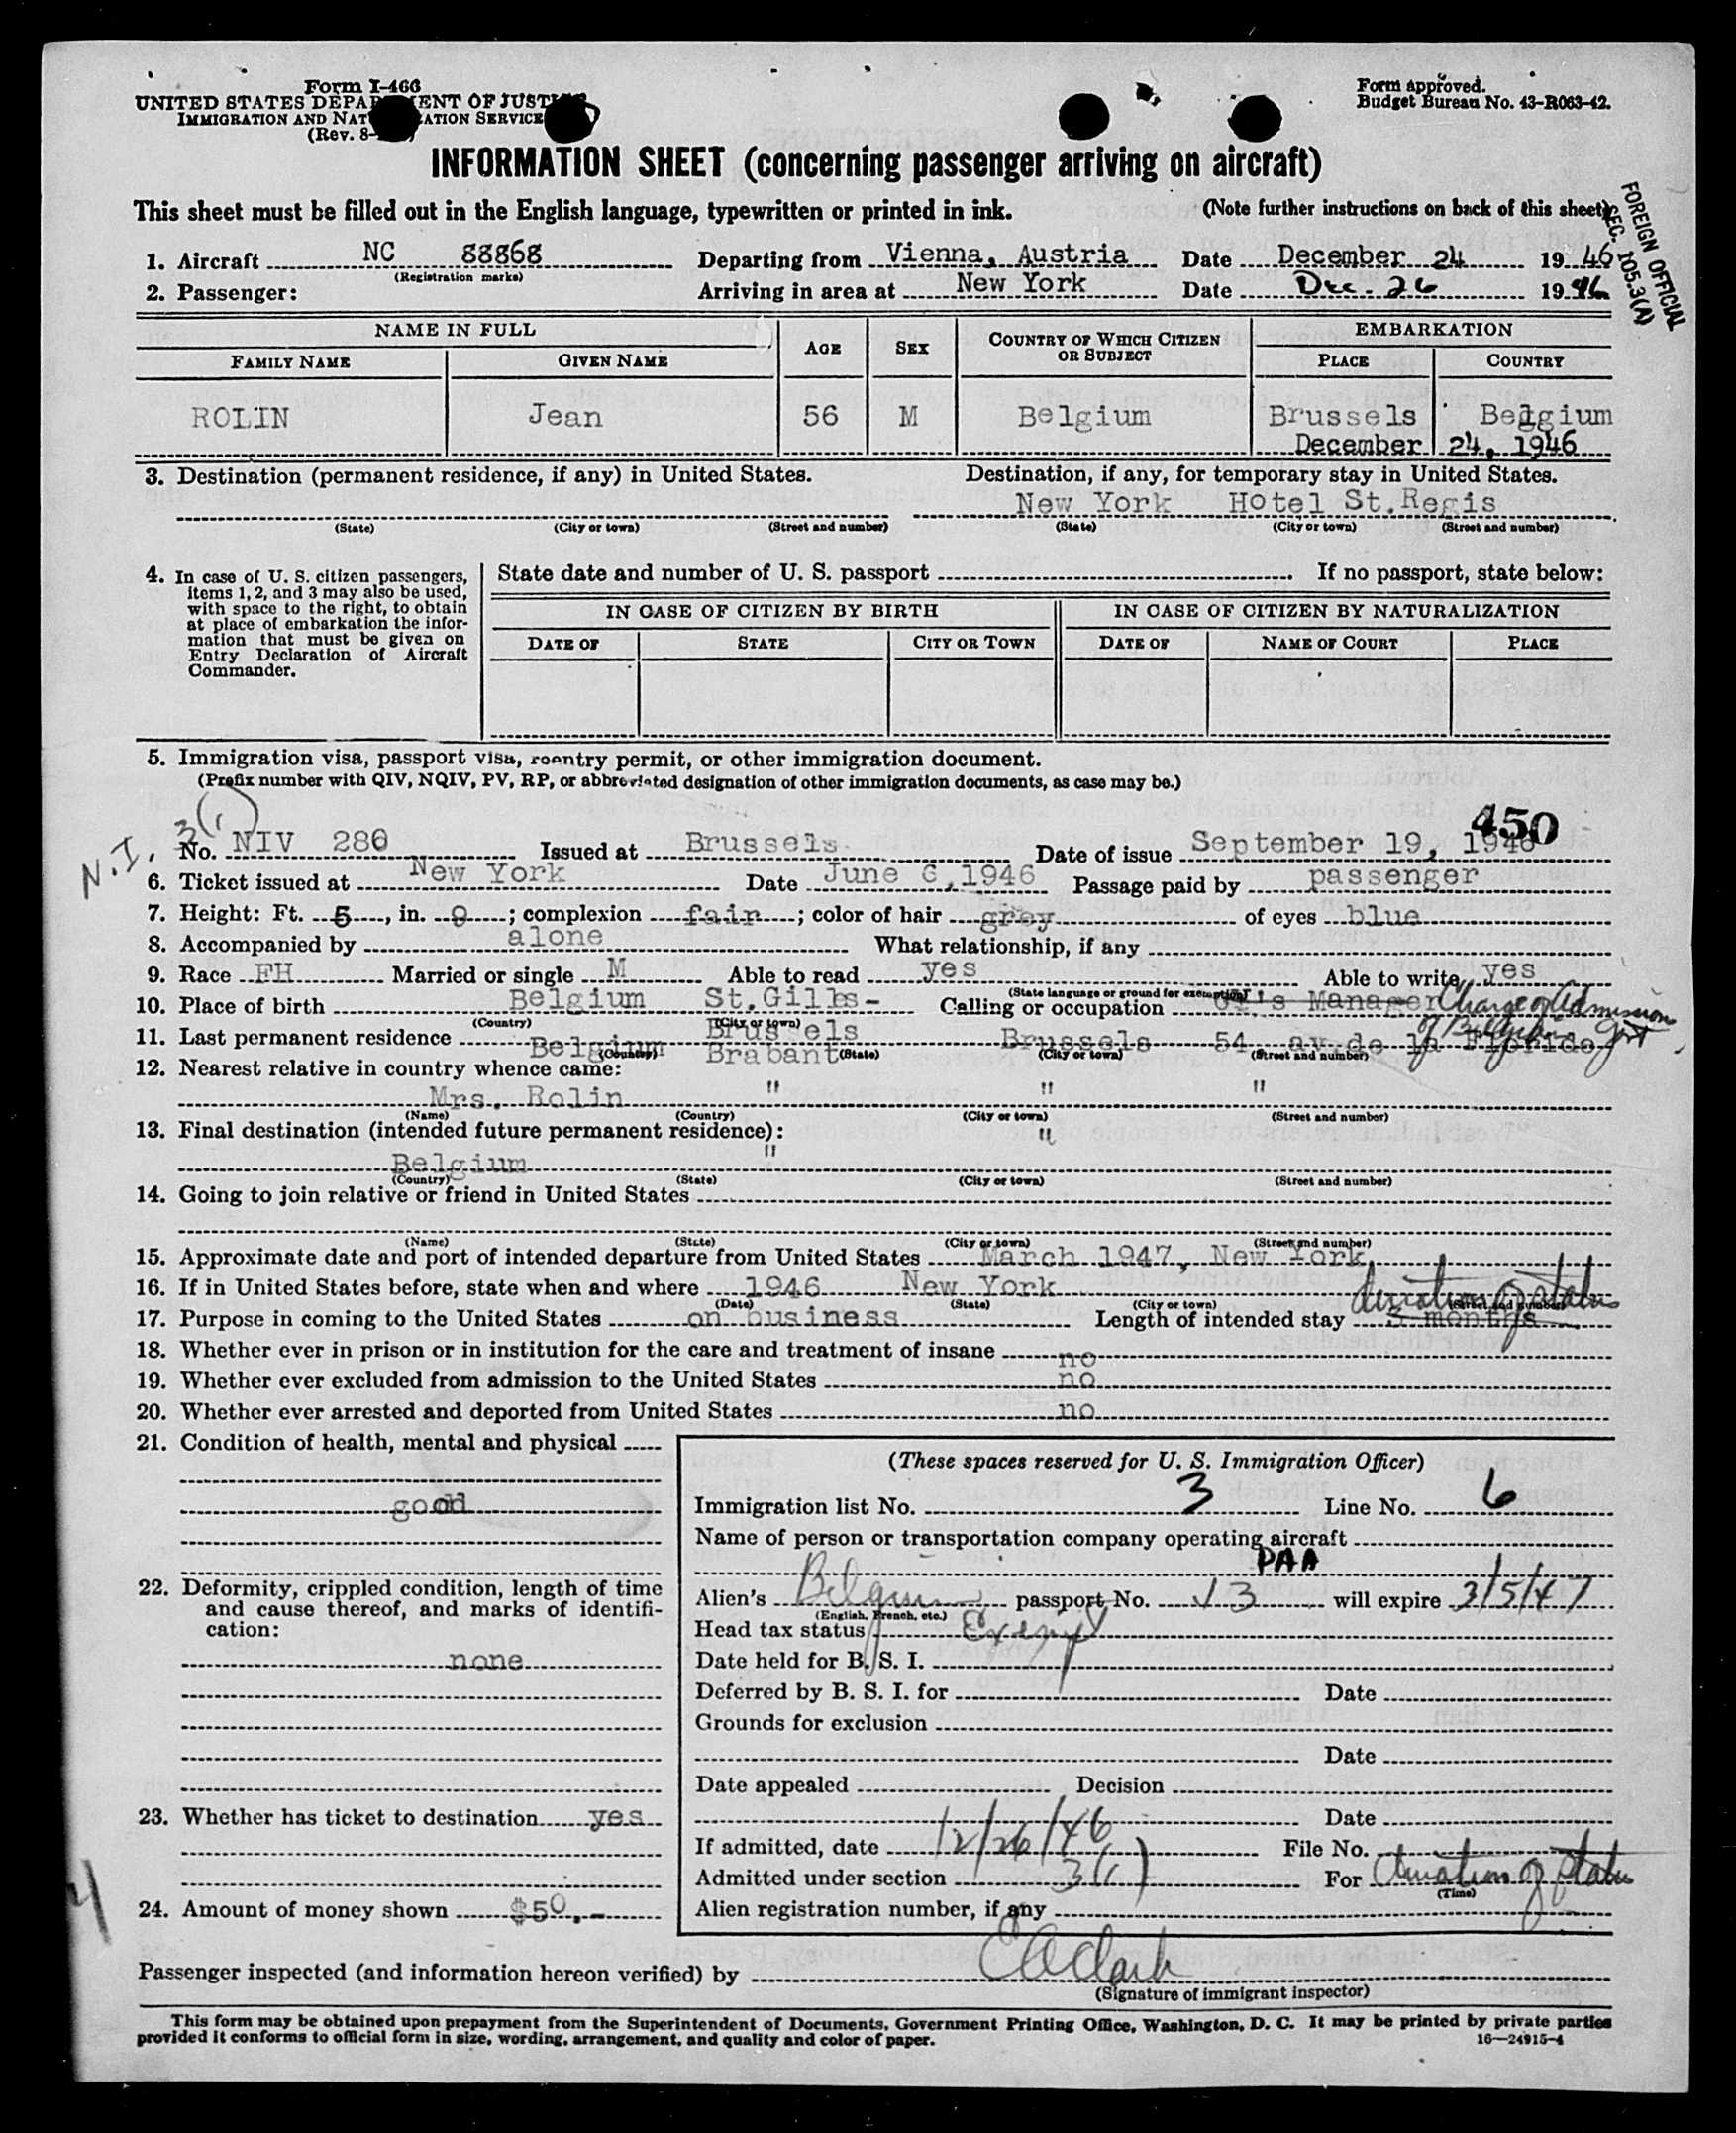 Form I-466
UNITED STATES DEPARTMENT OF JUSTICE
IMMIGRATION AND NATURALIZATION SERVICE
(Rev. 8-
Form approved.
Budget Bureau No. 43-R063-42.
INFORMATION SHEET (concerning passenger arriving on aircraft)
This sheet must be filled out in the English language, typewritten or printed in ink. (Note further instructions on back of this sheet)
FOREIGN OFFICIAL
SEC. 105.3(A)
1. Aircraft NC 88868 Departing from Vienna, Austria Date December 24 1946
(Registration marks)
2. Passenger: Arriving in area at New York Date Dec. 26 1946
NAME IN FULL
FAMILY NAME GIVEN NAME AGE SEX COUNTRY OF WHICH CITIZEN OR SUBJECT EMBARKATION PLACE COUNTRY
ROLIN Jean 56 M Belgium Brussels Belgium
December 24, 1946
3. Destination (permanent residence, if any) in United States. Destination, if any, for temporary stay in United States.
New York Hotel St.Regis
(State) (City or town) (Street and number) (State) (City or town) (Street and number)
4. In case of U. S. citizen passengers, items 1, 2, and 3 may also be used, with space to the right, to obtain at place of embarkation the information that must be given on Entry Declaration of Aircraft Commander.
State date and number of U. S. passport If no passport, state below:
IN CASE OF CITIZEN BY BIRTH IN CASE OF CITIZEN BY NATURALIZATION
DATE OF STATE CITY OR TOWN DATE OF NAME OF COURT PLACE
5. Immigration visa, passport visa, reentry permit, or other immigration document.
(Prefix number with QIV, NQIV, PV, RP, or abbreviated designation of other immigration documents, as case may be.)
3(1) 450
N.I.
No. NIV 280 Issued at Brussels Date of issue September 19, 1946
6. Ticket issued at New York Date June 6, 1946 Passage paid by passenger
7. Height: Ft. 5, in. 9; complexion fair; color of hair grey of eyes blue
8. Accompanied by alone What relationship, if any
9. Race FH Married or single M Able to read yes Able to write yes
(State language or ground for exemption)
10. Place of birth Belgium St.Gilles- Brussels Calling or occupation Manager Charge of Admission of Belgian Govt
(Country) (City or town)
11. Last permanent residence Belgium Brabant Brussels 54 av de la Floride
(Country) (State) (City or town) (Street and number)
12. Nearest relative in country whence came:
Mrs. Rolin " " "
(Name) (Country) (City or town) (Street and number)
13. Final destination (intended future permanent residence): "
Belgium "
(Country) (State) (City or town) (Street and number)
14. Going to join relative or friend in United States
(Name) (State) (City or town) (Street and number)
15. Approximate date and port of intended departure from United States March 1947, New York
16. If in United States before, state when and where 1946 New York
(Date) (State) (City or town) (Street and number)
17. Purpose in coming to the United States on business Length of intended stay 3 months duration of status
18. Whether ever in prison or in institution for the care and treatment of insane no
19. Whether ever excluded from admission to the United States no
20. Whether ever arrested and deported from United States no
21. Condition of health, mental and physical
good
22. Deformity, crippled condition, length of time and cause thereof, and marks of identification:
none
23. Whether has ticket to destination yes
24. Amount of money shown $50.-
4
(These spaces reserved for U. S. Immigration Officer)
Immigration list No. 3 Line No. 6
Name of person or transportation company operating aircraft
PAA
Alien's Belgium passport No. 13 will expire 3/5/47
(English, French, etc.)
Head tax status Exempt
Date held for B. S. I.
Deferred by B. S. I. for Date
Grounds for exclusion
Date
Date appealed Decision
Date
If admitted, date 12/26/46 File No.
Admitted under section 3(1) For duration of status
(Time)
Alien registration number, if any
Passenger inspected (and information hereon verified) by CAClark
(Signature of immigrant inspector)
This form may be obtained upon prepayment from the Superintendent of Documents, Government Printing Office, Washington, D. C. It may be printed by private parties
provided it conforms to official form in size, wording, arrangement, and quality and color of paper. 16—24915-4